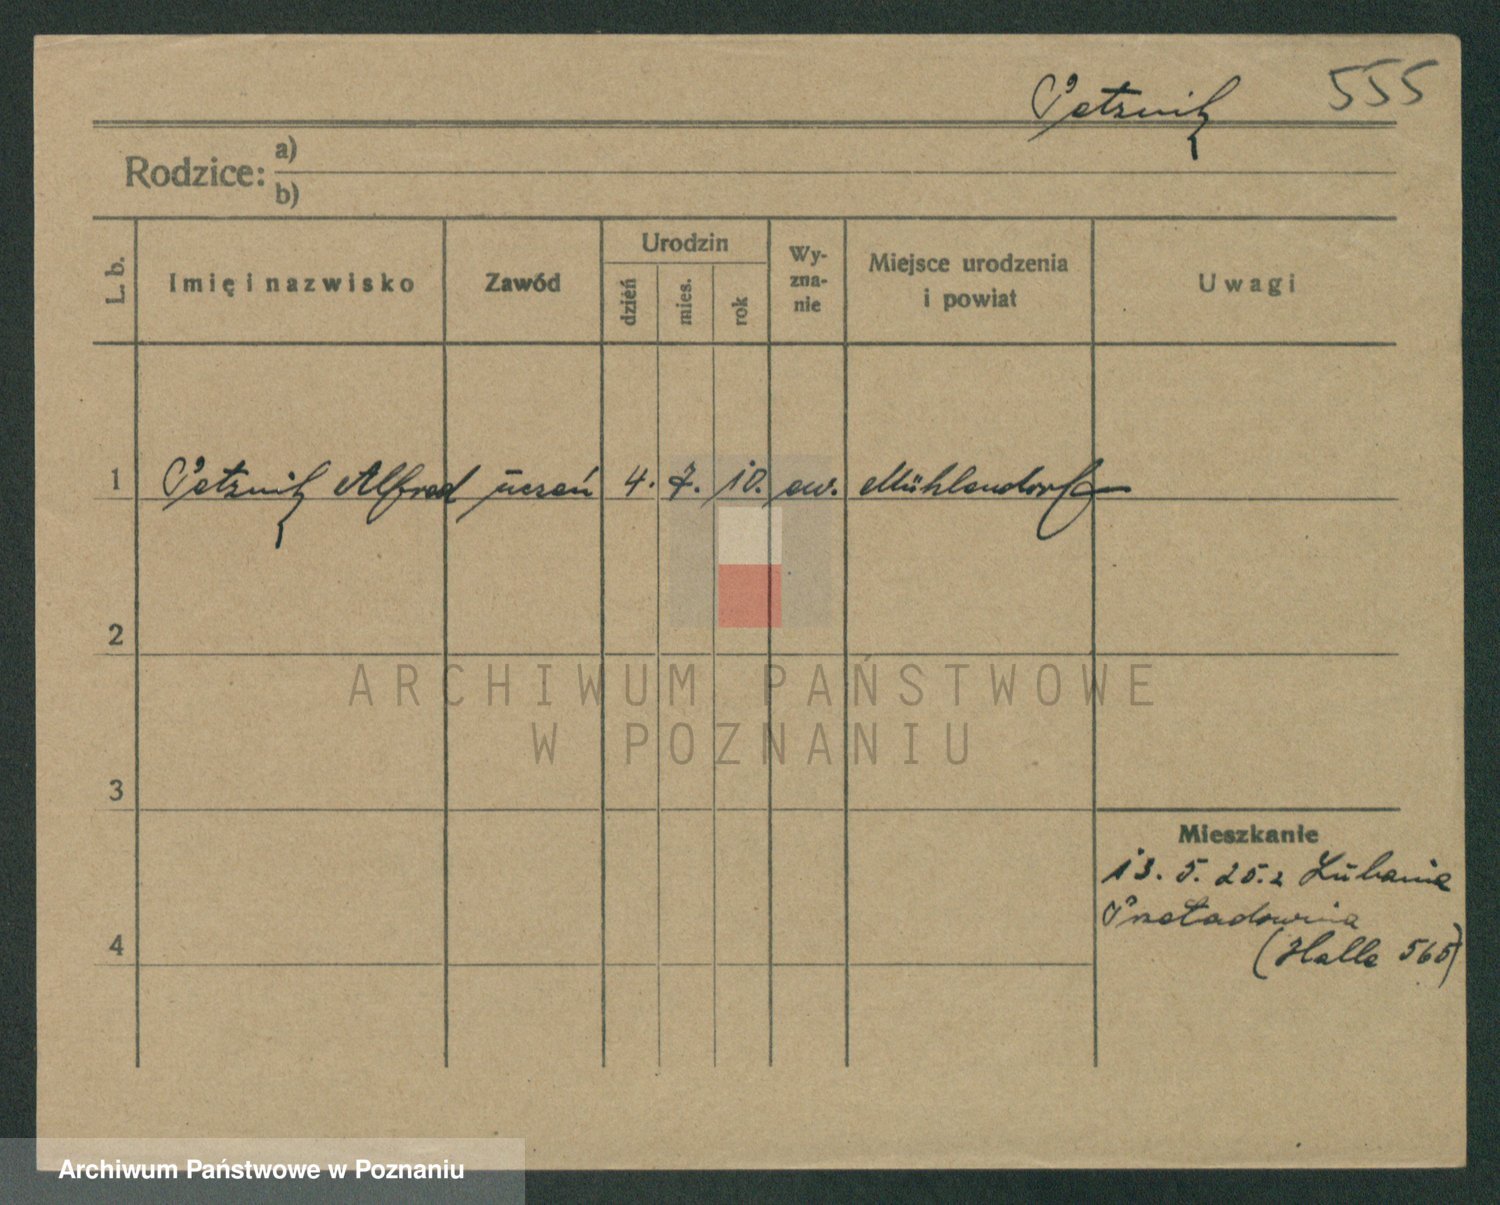 Petznik 555
Rodzice: a)
b)
L. b. Imię i nazwisko Zawód Urodzin dzień mies. rok Wy-zna-nie Miejsce urodzenia i powiat Uwagi
1 Petznik Alfred uczeń 4. 7. 10. ew. Mühlendorf
2
ARCHIWUM PAŃSTWOWE
W POZNANIU
3
Mieszkanie
13. 5. 25. z Lubania
4
(Halle 565)
Archiwum Państwowe w Poznaniu